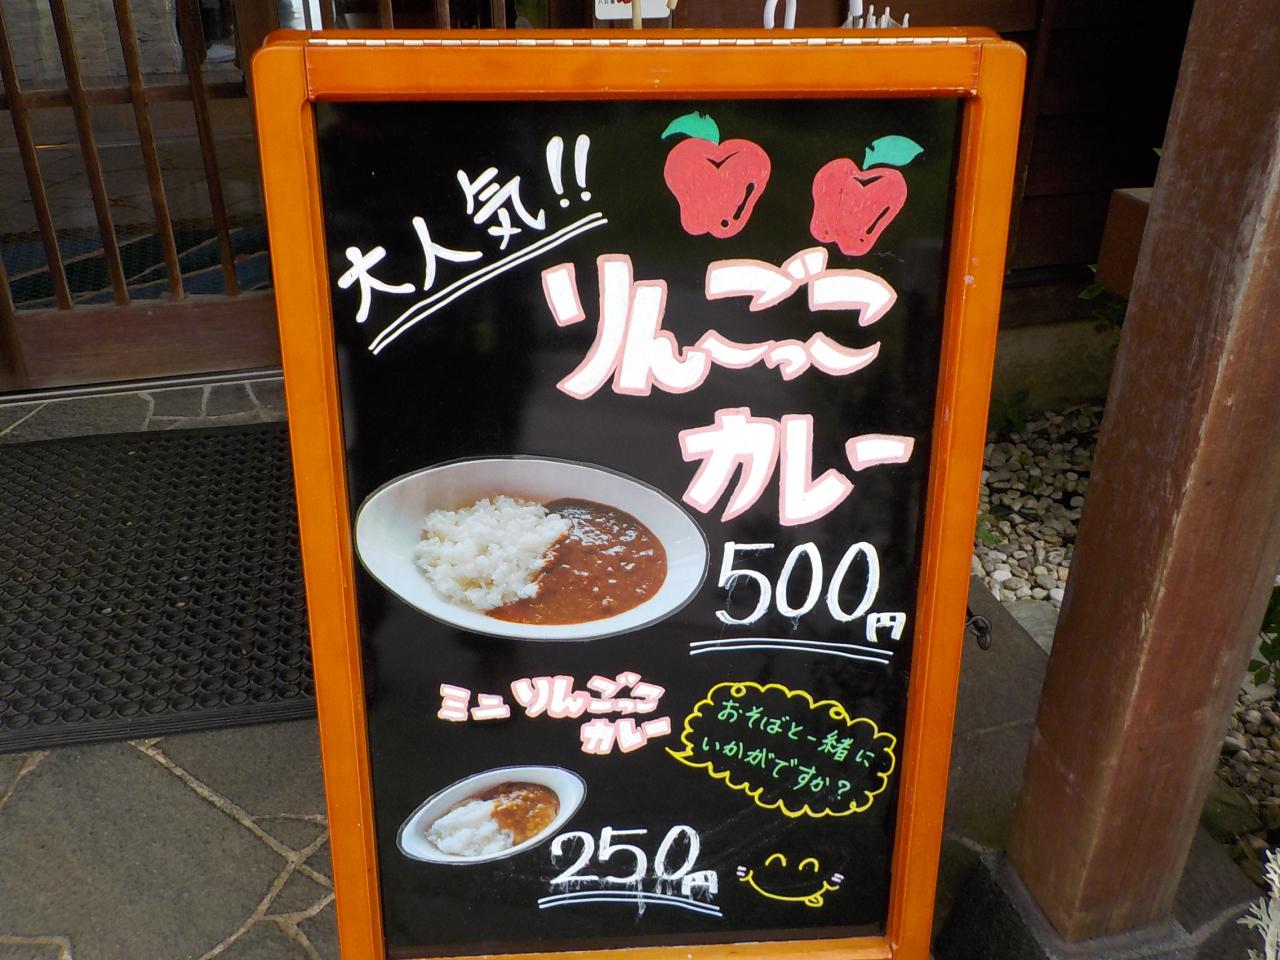 大人気!!
りんごっこ
カレー
500円
ミニりんごっこ
カレー
おそばと一緒に
いかがですか?
250円